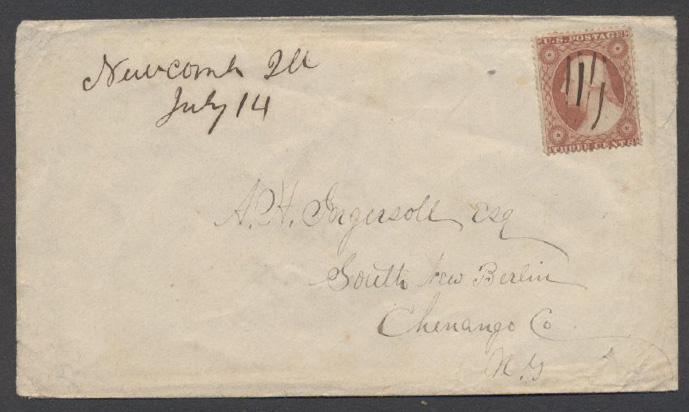 Newcomb Ill
July 14
U.S. POSTAGE
THREE CENTS
A. H. Ingersoll Esq
South New Berlin
Chenango Co.
N.Y